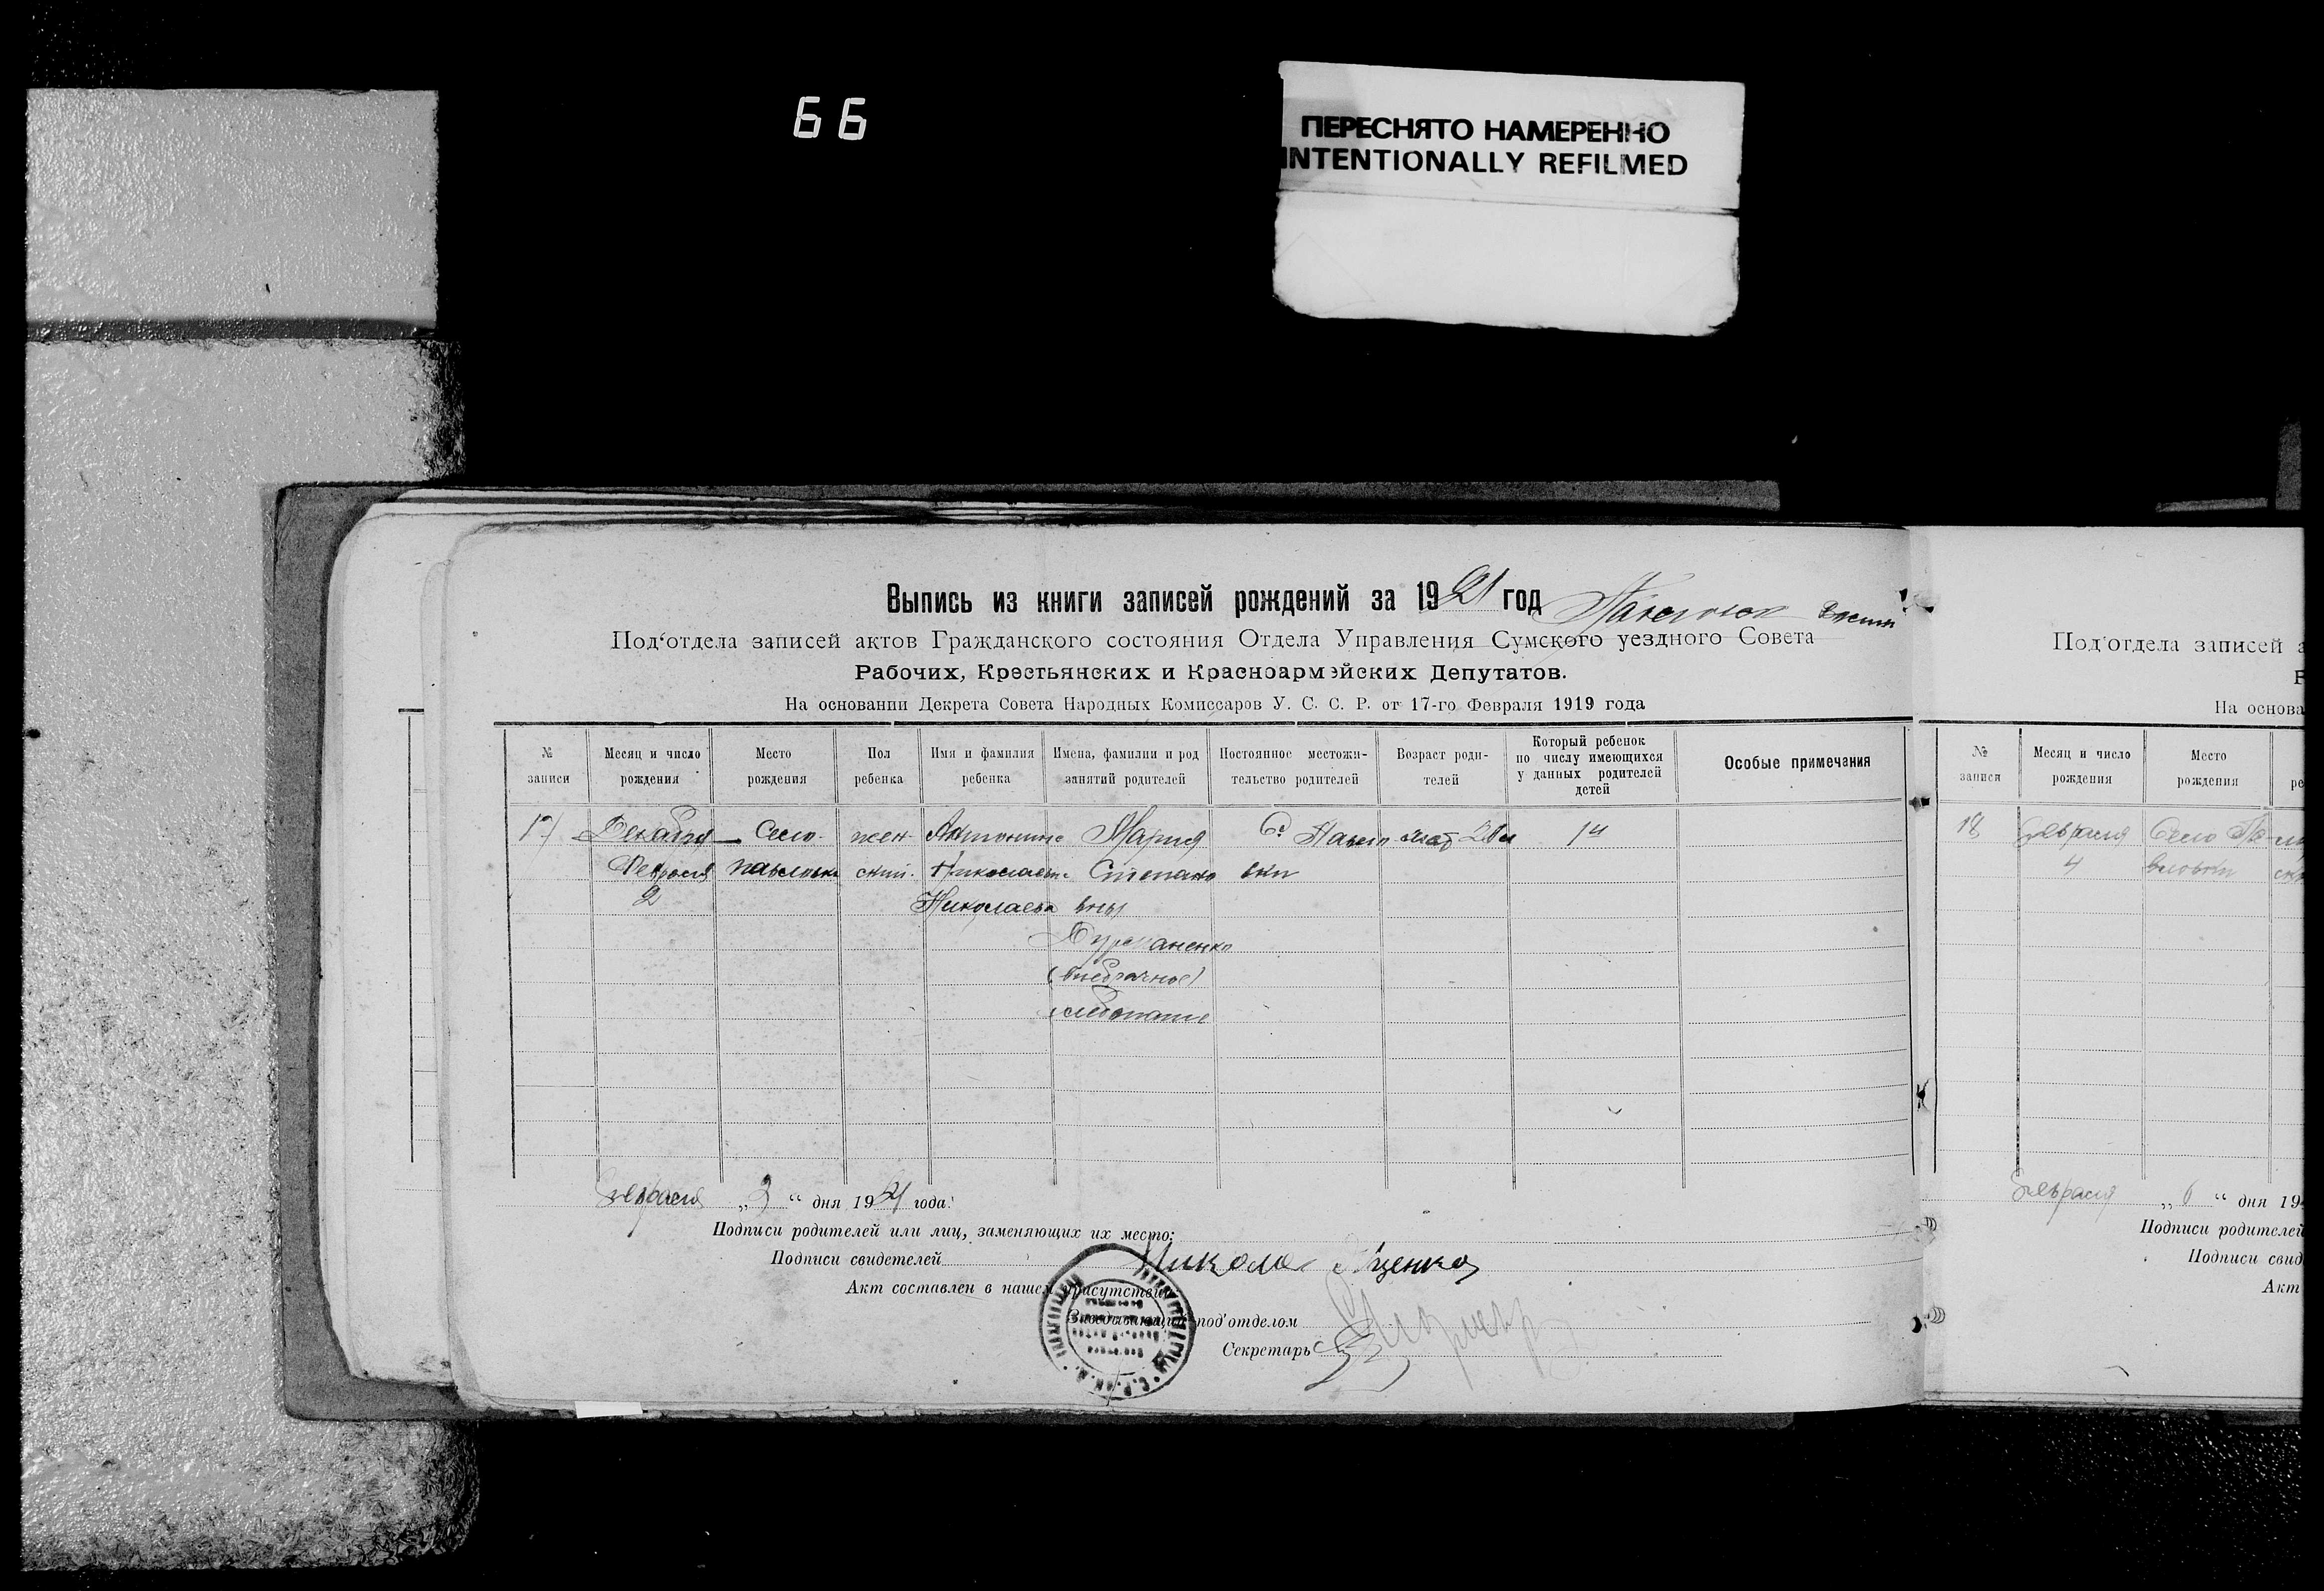 66
ПЕРЕСНЯТО НАМЕРЕННО
INTENTIONALLY REFILMED
Выпись из книги записей рождений за 1921 год
Под‘отдела записей актов Гражданского состояния Отдела Управления Сумского уездного Совета
Рабочих, Крестьянских и Красноармейских Депутатов.
На основании Декрета Совета Народных Комиссаров У. С. С. Р. от 17-го Февраля 1919 года
№ записи
Месяц и число рождения
Место рождения
Пол ребенка
Имя и фамилия ребенка
Имена, фамилии и род занятий родителей
Постоянное местожительство родителей
Возраст родителей
Который ребенок по числу имеющихся у данных родителей детей
Особые примечания
17 Декабря Село жен Антонина Мария С. Павло 1й
Февраля павловка ский Николаевна Степано вки
2 Николаева вны
(внебрачное)
хлебопаш
Февраля „3“ дня 1921 года.
Подписи родителей или лиц, заменяющих их место:
Подписи свидетелей Никола
Акт составлен в нашем присутствии
Заведывающий под‘отделом
Секретарь
Под‘отдела записей
На основа
№ записи
Месяц и число рождения
Место рождения
18 Февраля Село Па
4 вловки
Февраля „6“ дня 19
Подписи родителей
Подписи свид
Акт